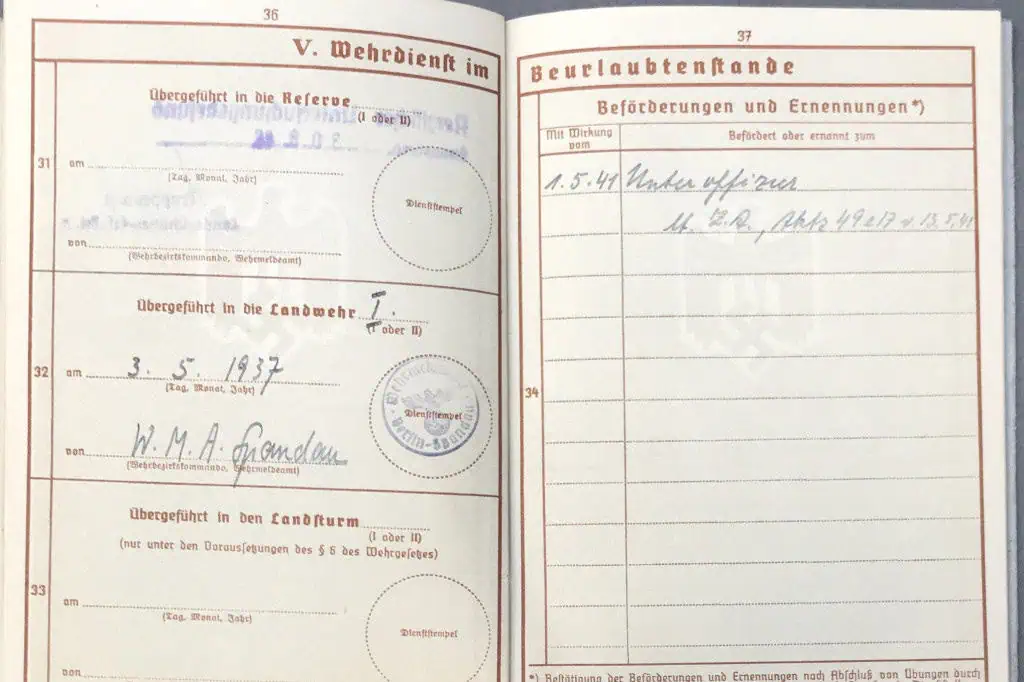 36
V. Wehrdienst im
31
Übergeführt in die Reserve
(I oder II)
am
(Tag, Monat, Jahr)
Dienststempel
von
(Wehrbezirkskommando, Wehrmeldeamt)
32
Übergeführt in die Landwehr I.
(I oder II)
am 3. 5. 1937
(Tag, Monat, Jahr)
Dienststempel
Berlin-Spandau
von W. M. A. Spandau
(Wehrbezirkskommando, Wehrmeldeamt)
33
Übergeführt in den Landsturm
(I oder II)
(nur unter den Voraussetzungen des § 6 des Wehrgesetzes)
am
(Tag, Monat, Jahr)
Dienststempel
von
37
Beurlaubtenstande
34
Beförderungen und Ernennungen*)
Mit Wirkung vom
Befördert oder ernannt zum
1.5.41 Unteroffizier
49e17 v. 13.5.41
*) Bestätigung der Beförderungen und Ernennungen nach Abschluß von Übungen durch